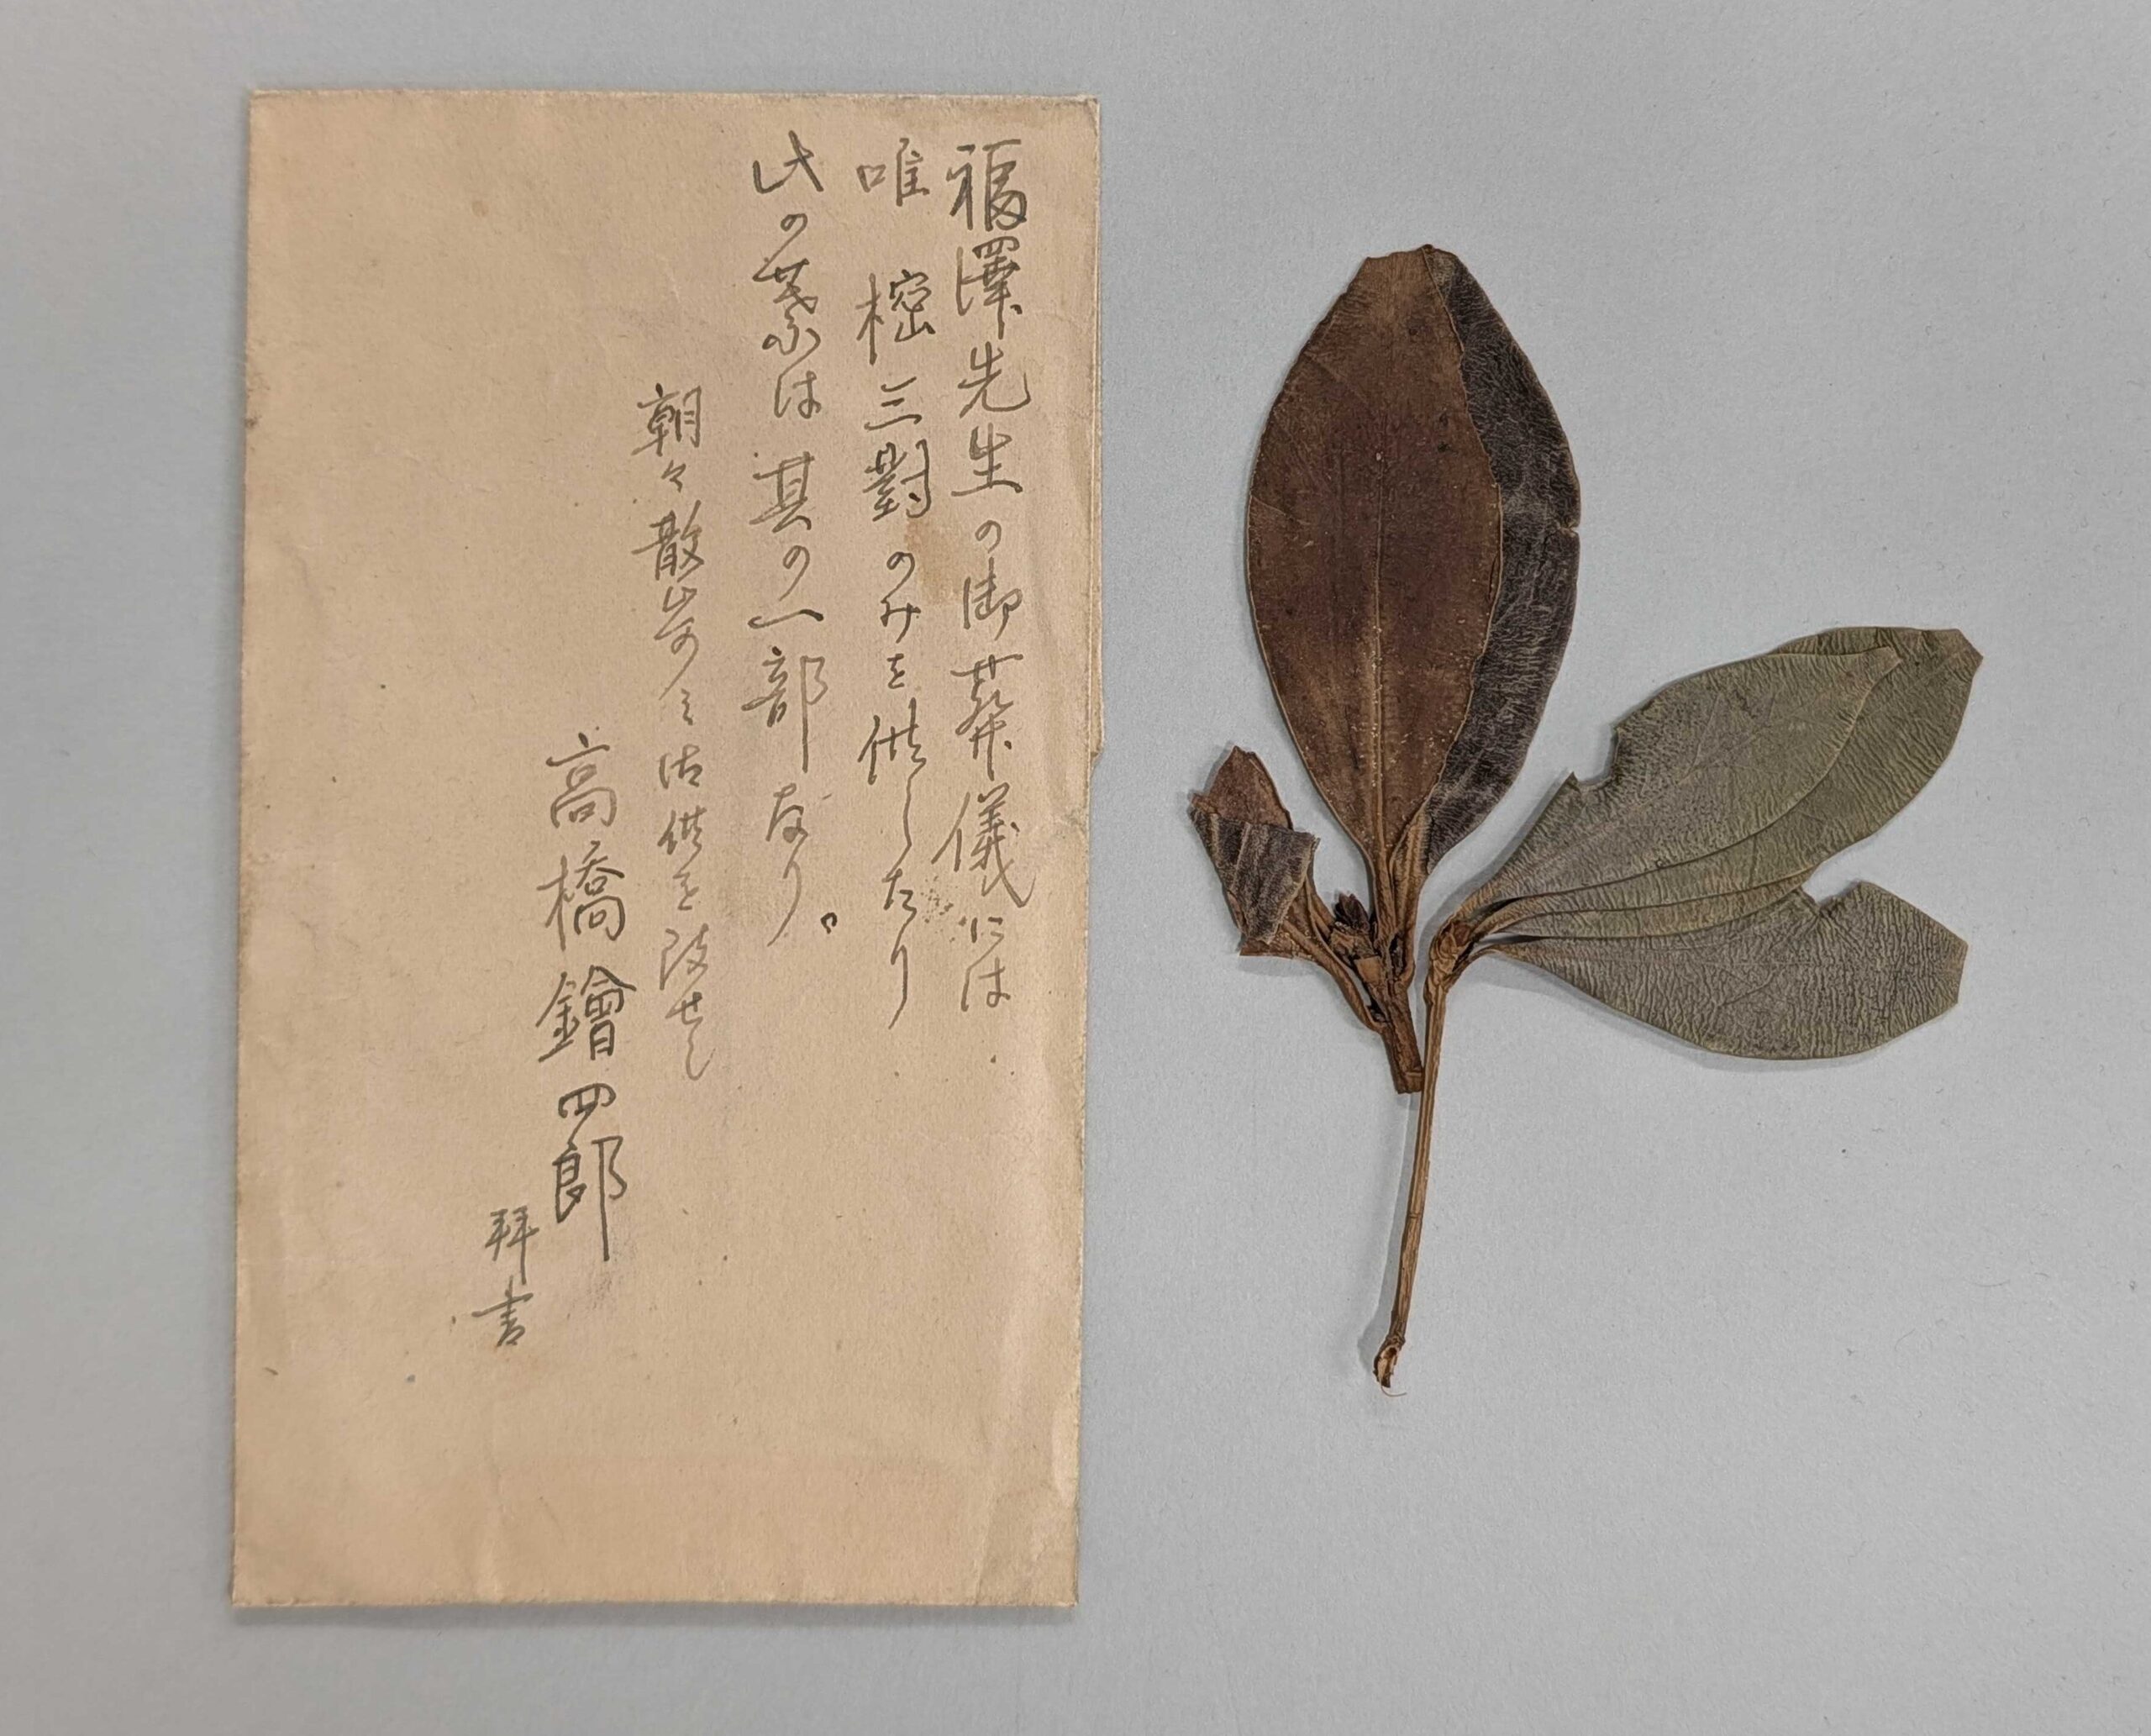 福澤先生の御葬儀には
唯樒三對のみを供したり
此の葉は其の一部なり。
朝々散歩の
高橋鐕四郎
拜書